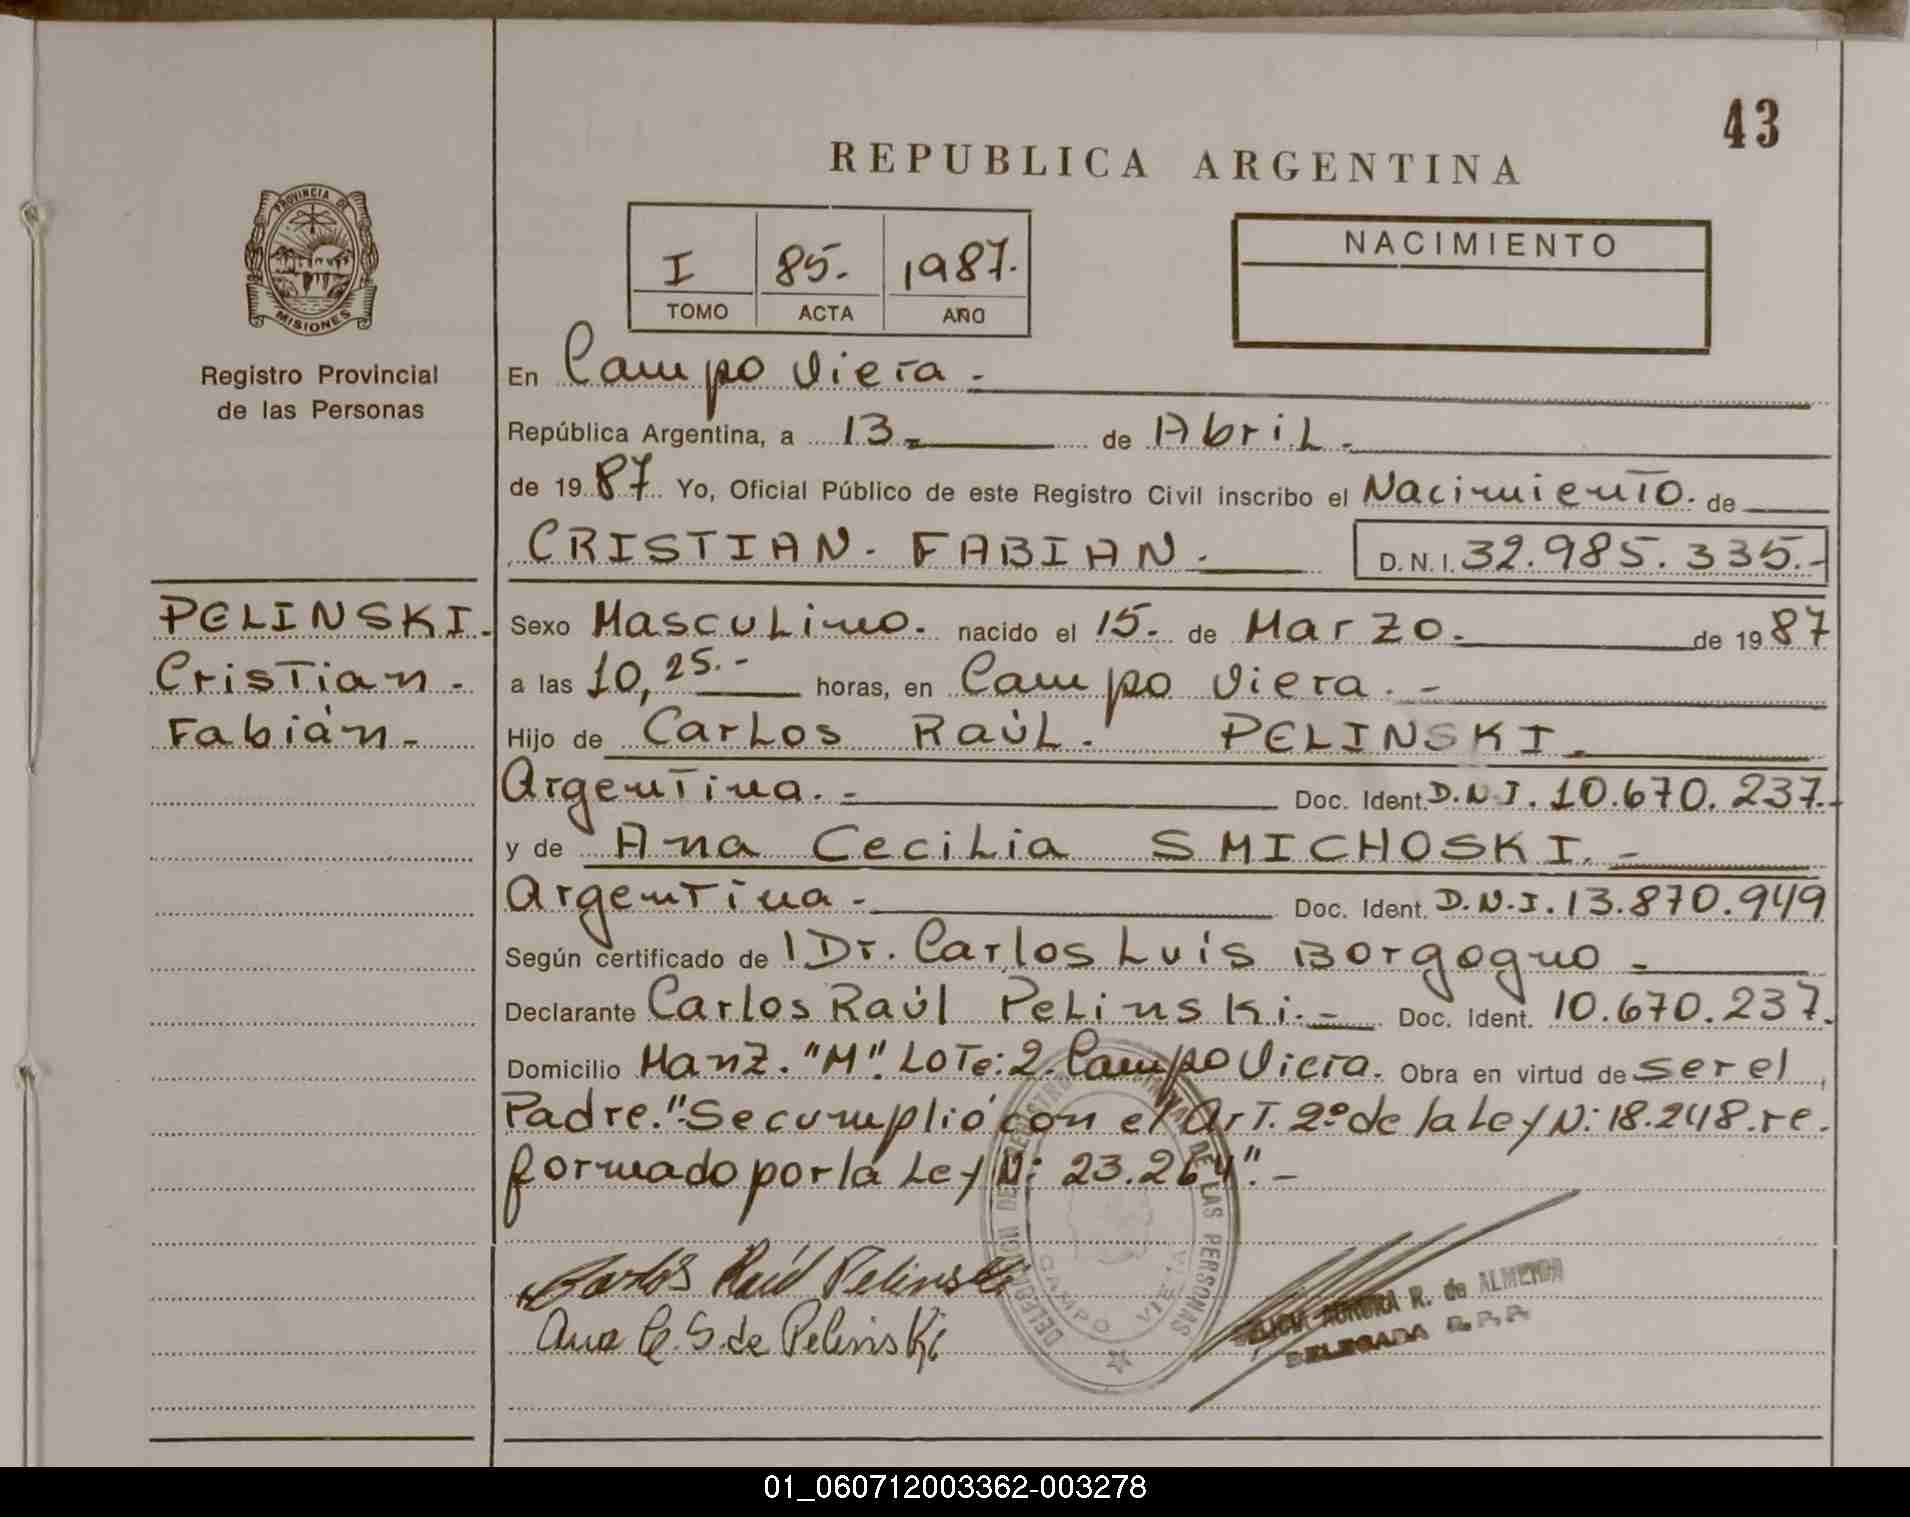 43
REPUBLICA ARGENTINA
PROVINCIA DE
MISIONES
Registro Provincial
de las Personas
I 85. 1987.
TOMO ACTA AÑO
NACIMIENTO
En Campo Viera.-
República Argentina, a 13.- de Abril.-
de 1987 Yo, Oficial Público de este Registro Civil inscribo el Nacimiento. de
CRISTIAN. FABIAN.- D.N.I. 32.985.335.-
PELINSKI.
Cristian.
Fabián.-
Sexo Masculino. nacido el 15. de Marzo. de 1987
a las 10,25.- horas, en Campo Viera.-
Hijo de Carlos Raúl. PELINSKI.
Argentina.- Doc. Ident. D.N.I. 10.670.237.-
y de Ana Cecilia SMICHOSKI.-
Argentina.- Doc. Ident. D.N.I. 13.870.949
Según certificado de l Dr. Carlos Luis Borgogno-
Declarante Carlos Raúl Pelinski.- Doc. Ident. 10.670.237.
Domicilio Manz. "M". Lote: 2. Campo Viera. Obra en virtud de ser el
Padre. "Se cumplió con el Art. 2º de la Ley N: 18.248. re.
formado por la Ley N: 23.264".-
Carlos Raúl Pelinski
Ana C. S. de Pelinski
DE LAS PERSONAS
CAMPO VIERA
AURORA R. de ALMEIDA
DELEGADA R.P.P.
01_060712003362-003278